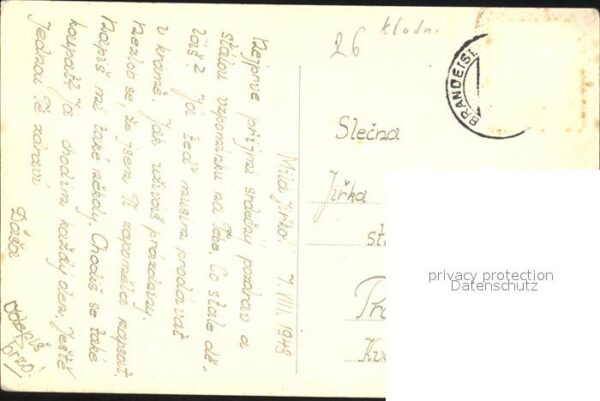 Milá Jiřko. 7.VIII.1948
Nejprve přijmi srdečný pozdrav a
stálou vzpomínku na Tebe. Co stále dě-
láš? Já teď musím prodávat
v krámě. Jak užíváš prázdniny.
Nezlob se, že jsem Ti zapoměla napsat.
Napiš mi také někdy. Chodíš se také
koupat? Já chodím každý den. Ještě
jednou Tě zdraví
Dáša
Odepiš
brzo!
26
kladn.
BRANDEISL
Slečna
Jiřka
st
Pra
Kv
privacy protection
Datenschutz